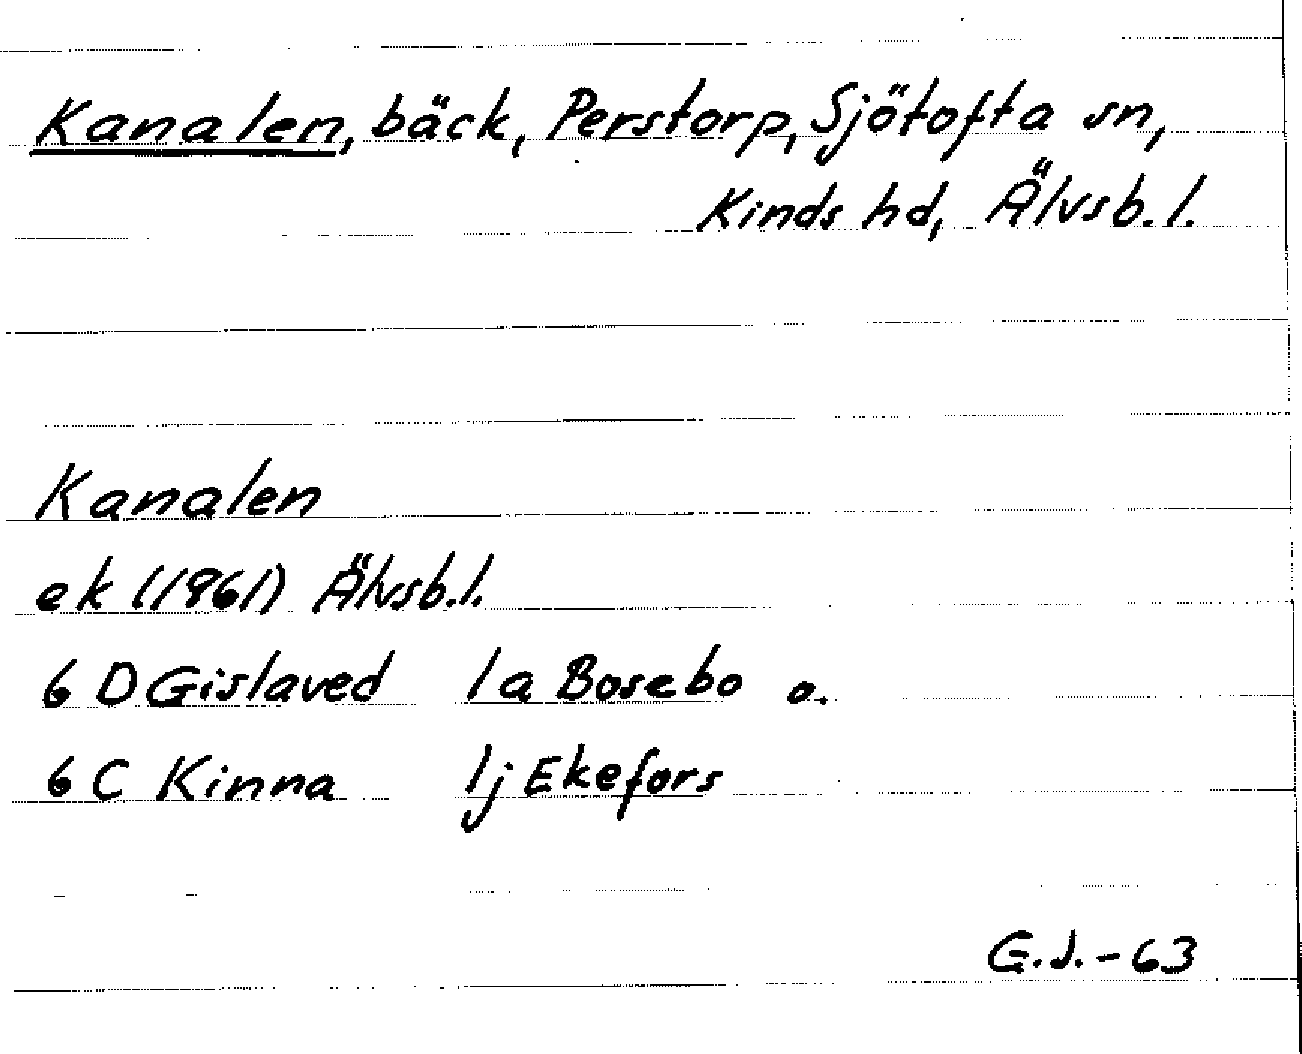 Kanalen, bäck, Perstorp, Sjötofta sn,
Kinds hd, Älvsb.l.
Kanalen
ek (1961) Älvsb.l.
6 D Gislaved 1a Bosebo o.
6 C Kinna 1j Ekefors
G.J.-63